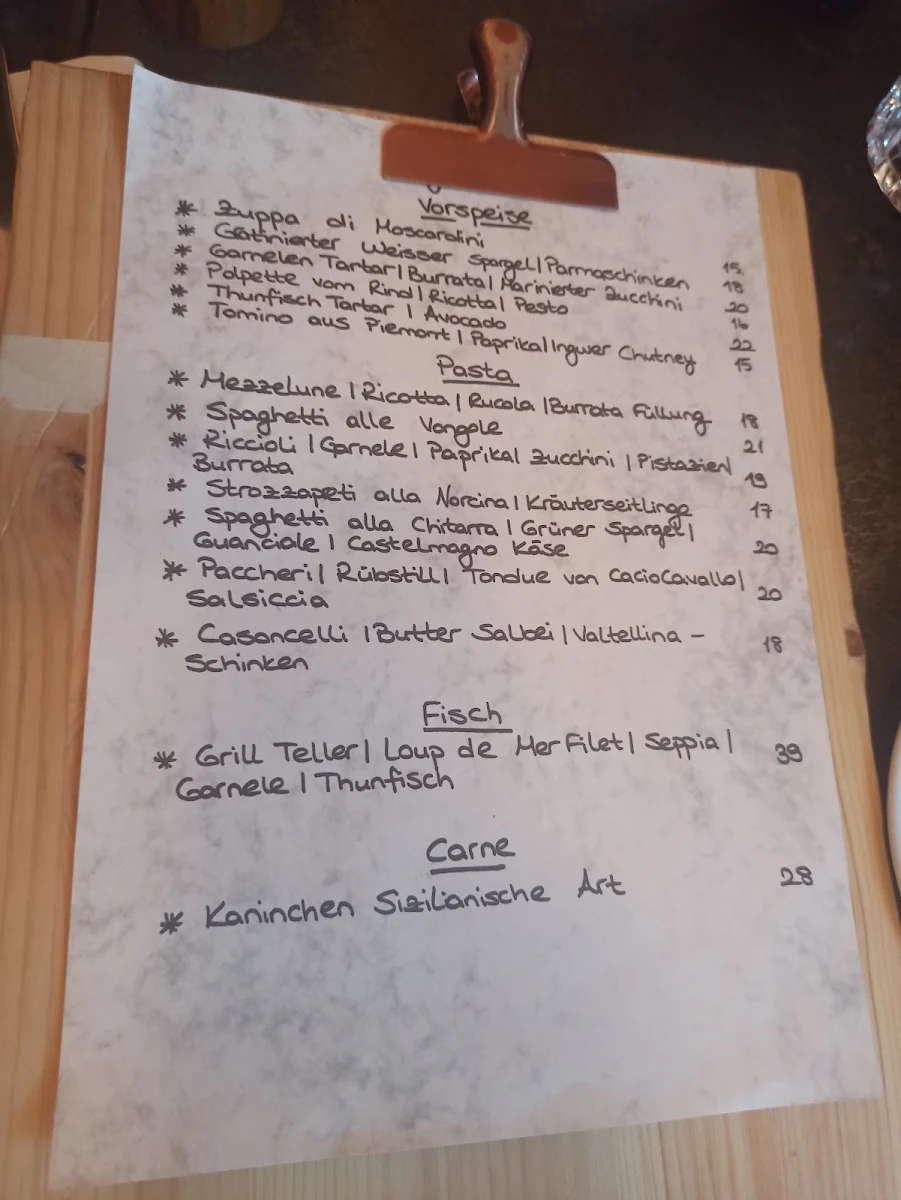 Vorspeise
* Zuppa di Moscardini 15
* Gratinierter Weisser Spargel | Parmaschinken 18
* Garnelen Tartar | Burrata | Marinierter Zucchini 20
* Polpette vom Rind | Ricotta | Pesto 16
* Thunfisch Tartar | Avocado 22
* Tomino aus Piemont | Paprika | Ingwer Chutney 15
Pasta
* Mezzelune | Ricotta | Rucola | Burrata Füllung 18
* Spaghetti alle Vongole 21
* Riccioli | Garnele | Paprika | Zucchini | Pistazien |
Burrata 19
* Strozzapeti alla Norcina | Kräuterseitlinge 17
* Spaghetti alla Chitarra | Grüner Spargel |
Guanciale | Castelmagno Käse 20
* Paccheri | Rübstill | Tondue von CacioCavallo |
Salsiccia 20
* Casoncelli | Butter Salbei | Valtellina -
Schinken 18
Fisch
* Grill Teller | Loup de Mer Filet | Seppia | 39
Garnele | Thunfisch
Carne
* Kaninchen Sizilianische Art 28